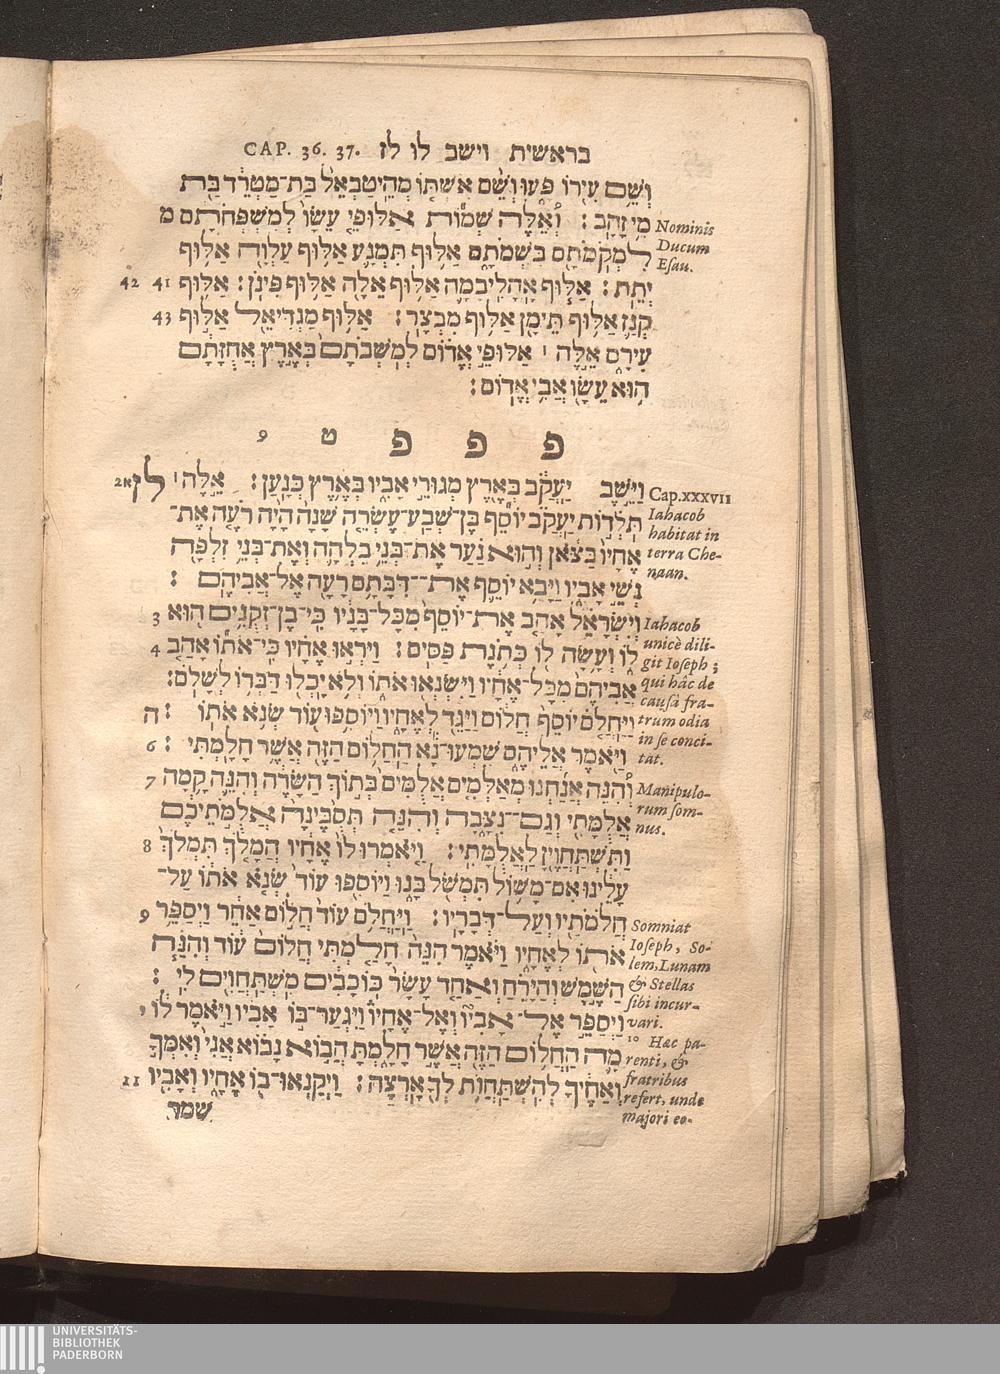 בראשית וישב לו לז CAP. 36. 37.
וְשֵׁם עִירוֹ פָּעוּ וְשֵׁם אִשְׁתּוֹ מְהֵיטַבְאֵל בַּת־מַטְרֵד בַּת
מֵי זָהָב׃ וְאֵלֶּה שְׁמוֹת אַלּוּפֵי עֵשָׂו לְמִשְׁפְּחֹתָם מ
לִמְקֹמֹתָם בִּשְׁמֹתָם אַלּוּף תִּמְנָע אַלּוּף עַלְוָה אַלּוּף
יְתֵת׃ אַלּוּף אָהֳלִיבָמָה אַלּוּף אֵלָה אַלּוּף פִּינֹן׃ אַלּוּף 41 42
קְנַז אַלּוּף תֵּימָן אַלּוּף מִבְצָר׃ אַלּוּף מַגְדִּיאֵל אַלּוּף 43
עִירָם אֵלֶּה ׀ אַלּוּפֵי אֱדוֹם לְמֹשְׁבֹתָם בְּאֶרֶץ אֲחֻזָּתָם
הוּא עֵשָׂו אֲבִי אֱדוֹם׃
פ פ פ ט 9
וַיֵּשֶׁב יַעֲקֹב בְּאֶרֶץ מְגוּרֵי אָבִיו בְּאֶרֶץ כְּנָעַן׃ אֵלֶּה ׀ לז א2
תֹּלְדוֹת יַעֲקֹב יוֹסֵף בֶּן־שְׁבַע־עֶשְׂרֵה שָׁנָה הָיָה רֹעֶה אֶת־
אֶחָיו בַּצֹּאן וְהוּא נַעַר אֶת־בְּנֵי בִלְהָה וְאֶת־בְּנֵי זִלְפָּה
נְשֵׁי אָבִיו וַיָּבֵא יוֹסֵף אֶת־דִּבָּתָם רָעָה אֶל־אֲבִיהֶם׃
וְיִשְׂרָאֵל אָהַב אֶת־יוֹסֵף מִכָּל־בָּנָיו כִּי־בֶן־זְקֻנִים הוּא 3
לוֹ וְעָשָׂה לוֹ כְּתֹנֶת פַּסִּים׃ וַיִּרְאוּ אֶחָיו כִּי־אֹתוֹ אָהַב 4
אֲבִיהֶם מִכָּל־אֶחָיו וַיִּשְׂנְאוּ אֹתוֹ וְלֹא יָכְלוּ דַּבְּרוֹ לְשָׁלֹם׃
וַיַּחֲלֹם יוֹסֵף חֲלוֹם וַיַּגֵּד לְאֶחָיו וַיּוֹסִפוּ עוֹד שְׂנֹא אֹתוֹ׃ ה
וַיֹּאמֶר אֲלֵיהֶם שִׁמְעוּ־נָא הַחֲלוֹם הַזֶּה אֲשֶׁר חָלָמְתִּי׃ 6
וְהִנֵּה אֲנַחְנוּ מְאַלְּמִים אֲלֻמִּים בְּתוֹךְ הַשָּׂדֶה וְהִנֵּה קָמָה 7
אֲלֻמָּתִי וְגַם־נִצָּבָה וְהִנֵּה תְסֻבֶּינָה אֲלֻמֹּתֵיכֶם
וַתִּשְׁתַּחֲוֶיןָ לַאֲלֻמָּתִי׃ וַיֹּאמְרוּ לוֹ אֶחָיו הֲמָלֹךְ תִּמְלֹךְ 8
עָלֵינוּ אִם־מָשׁוֹל תִּמְשֹׁל בָּנוּ וַיּוֹסִפוּ עוֹד שְׂנֹא אֹתוֹ עַל־
חֲלֹמֹתָיו וְעַל־דְּבָרָיו׃ וַיַּחֲלֹם עוֹד חֲלוֹם אַחֵר וַיְסַפֵּר 9
אֹתוֹ לְאֶחָיו וַיֹּאמֶר הִנֵּה חָלַמְתִּי חֲלוֹם עוֹד וְהִנֵּה
הַשֶּׁמֶשׁ וְהַיָּרֵחַ וְאַחַד עָשָׂר כּוֹכָבִים מִשְׁתַּחֲוִים לִי׃
וַיְסַפֵּר אֶל־אָבִיו וְאֶל־אֶחָיו וַיִּגְעַר־בּוֹ אָבִיו וַיֹּאמֶר לוֹ י
מָה הַחֲלוֹם הַזֶּה אֲשֶׁר חָלָמְתָּ הֲבוֹא נָבוֹא אֲנִי וְאִמְּךָ
וְאַחֶיךָ לְהִשְׁתַּחֲוֹת לְךָ אָרְצָה׃ וַיְקַנְאוּ־בוֹ אֶחָיו וְאָבִיו 11
שמר
Nominis
Ducum
Esau.
Cap.xxxvii
Iahacob
habitat in
terra Che-
naan.
Iahacob
unicè dili-
git Ioseph;
qui hâc de
causâ fra-
trum odia
in se conci-
tat.
Manipulo-
rum som-
nus.
Somniat
Ioseph, So-
lem, Lunam
& Stellas
sibi incur-
vari.
10 Hac pa-
renti, &
fratribus
refert, unde
majori eo-
UNIVERSITÄTS-
BIBLIOTHEK
PADERBORN